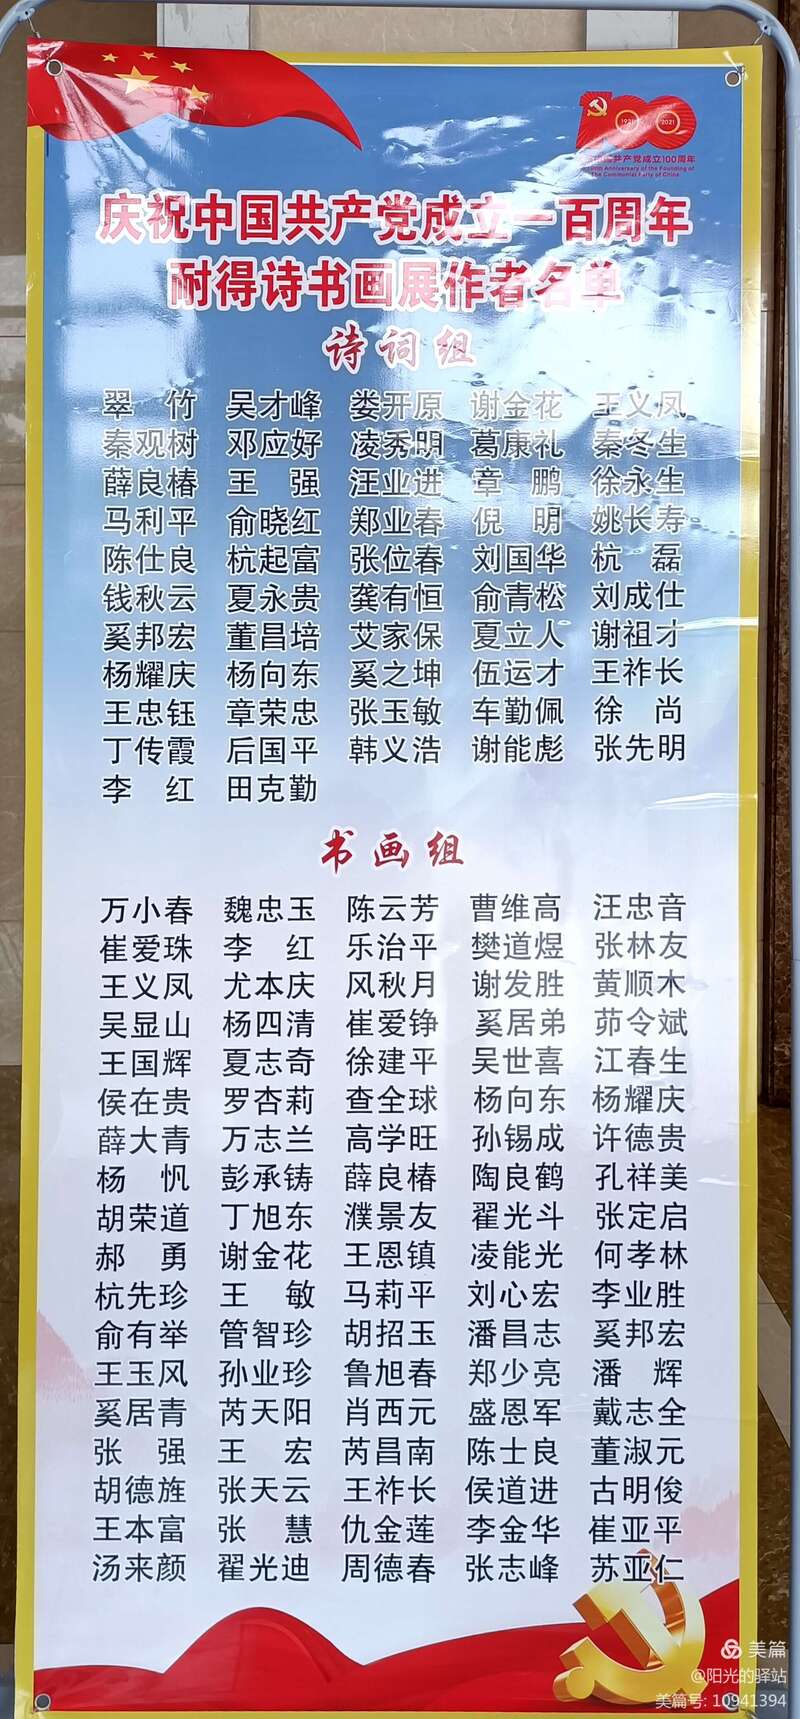 1921 2021
中国共产党成立100周年
The 100th Anniversary of the Founding of
The Communist Party of China
庆祝中国共产党成立一百周年
耐得诗书画展作者名单
诗词组
翠 竹 吴才峰 娄开原 谢金花 王义凤
秦观树 邓应好 凌秀明 葛康礼 秦冬生
薛良椿 王 强 汪业进 章 鹏 徐永生
马利平 俞晓红 郑业春 倪 明 姚长寿
陈仕良 杭起富 张位春 刘国华 杭 磊
钱秋云 夏永贵 龚有恒 俞青松 刘成仕
奚邦宏 董昌培 艾家保 夏立人 谢祖才
杨耀庆 杨向东 奚之坤 伍运才 王祚长
王忠钰 章荣忠 张玉敏 车勤佩 徐 尚
丁传霞 后国平 韩义浩 谢能彪 张先明
李 红 田克勤
书画组
万小春 魏忠玉 陈云芳 曹维高 汪忠音
崔爱珠 李 红 乐治平 樊道煜 张林友
王义凤 尤本庆 风秋月 谢发胜 黄顺木
吴显山 杨四清 崔爱铮 奚居弟 茆令斌
王国辉 夏志奇 徐建平 吴世喜 江春生
侯在贵 罗杏莉 查全球 杨向东 杨耀庆
薛大青 万志兰 高学旺 孙锡成 许德贵
杨 帆 彭承铸 薛良椿 陶良鹤 孔祥美
胡荣道 丁旭东 濮景友 翟光斗 张定启
郝 勇 谢金花 王恩镇 凌能光 何孝林
杭先珍 王 敏 马莉平 刘心宏 李业胜
俞有举 管智珍 胡招玉 潘昌志 奚邦宏
王玉风 孙业珍 鲁旭春 郑少亮 潘 辉
奚居青 芮天阳 肖西元 盛恩军 戴志全
张 强 王 宏 芮昌南 陈士良 董淑元
胡德旌 张天云 王祚长 侯道进 古明俊
王本富 张 慧 仇金莲 李金华 崔亚平
汤来颜 翟光迪 周德春 张志峰 苏亚仁
美篇
@阳光的驿站
美篇号: 10941394